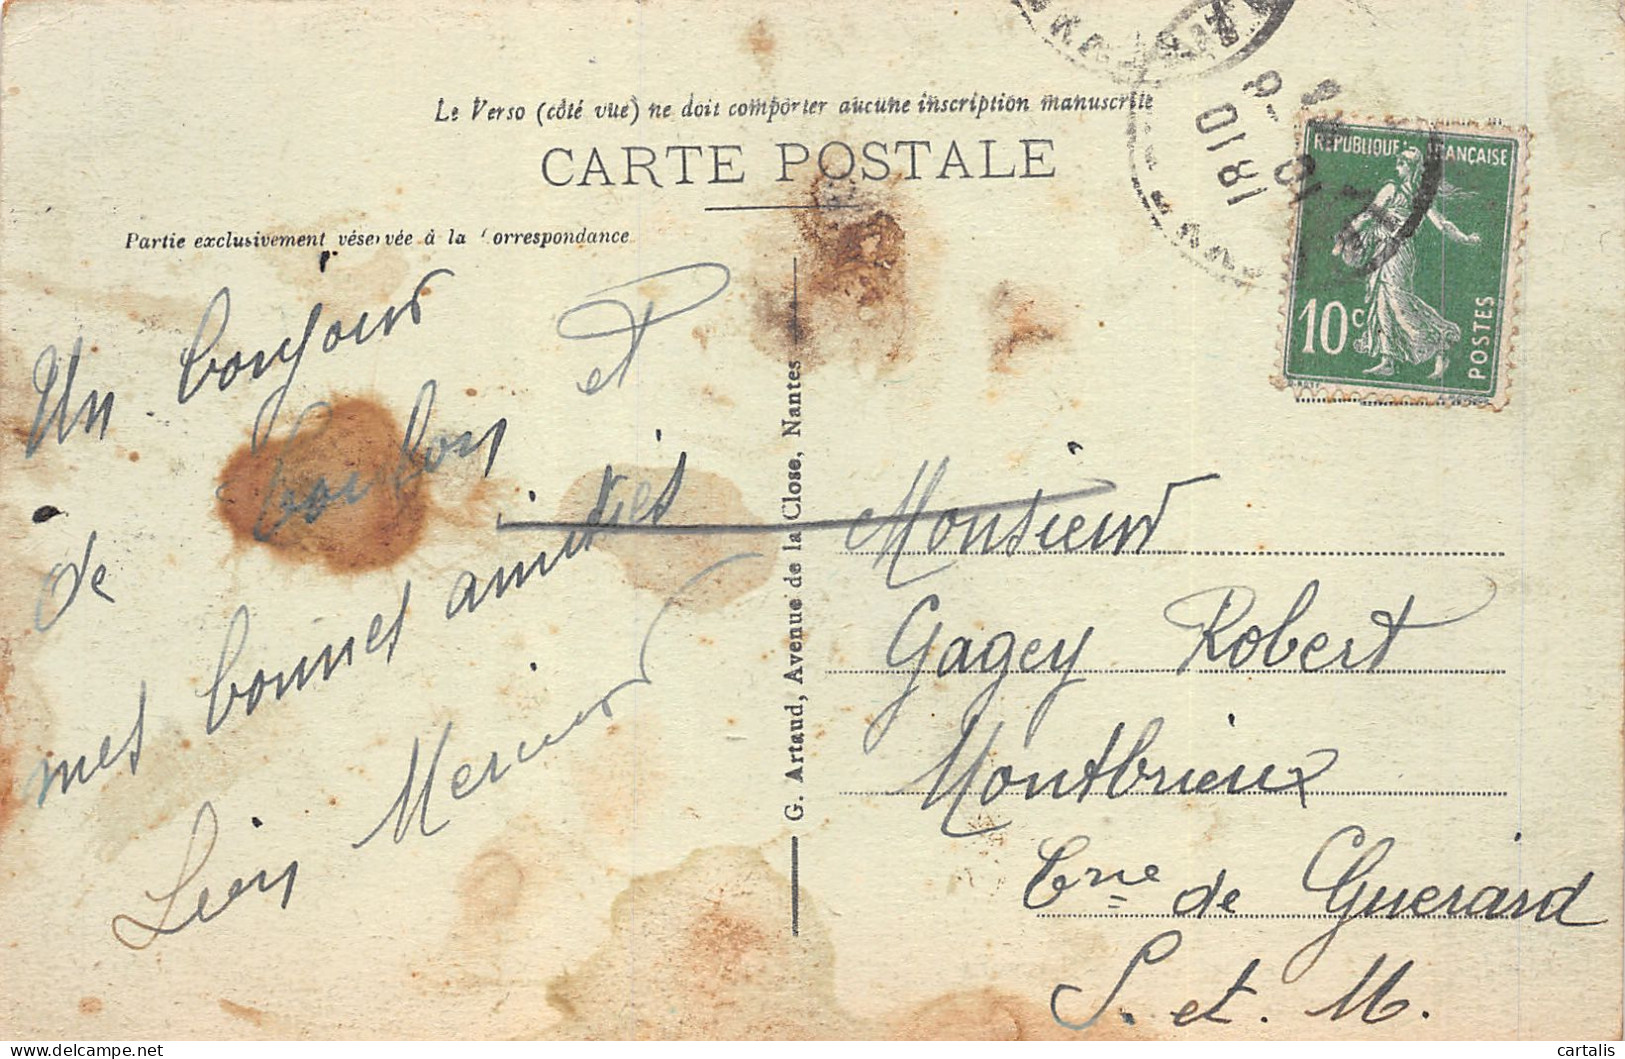 Le Verso (côté vue) ne doit comporter aucune inscription manuscrite
CARTE POSTALE
Partie exclusivement réservée à la Correspondance
RÉPUBLIQUE FRANÇAISE
10c
POSTES
1810
Un bonjour
de bourbon et
mes bonnes amitiés
Mercier
G. Artaud, Avenue de la Close, Nantes
Monsieur
Gagey Robert
Montbrieux
Cne de Guerard
S. et. M.
cartalis